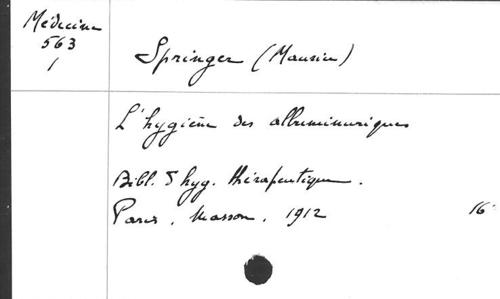 Médecine
563
1
Springer (Maurice)
L'hygiène des albuminuriques
Bibl. d'hyg. thérapeutique.
Paris, Masson, 1912 16